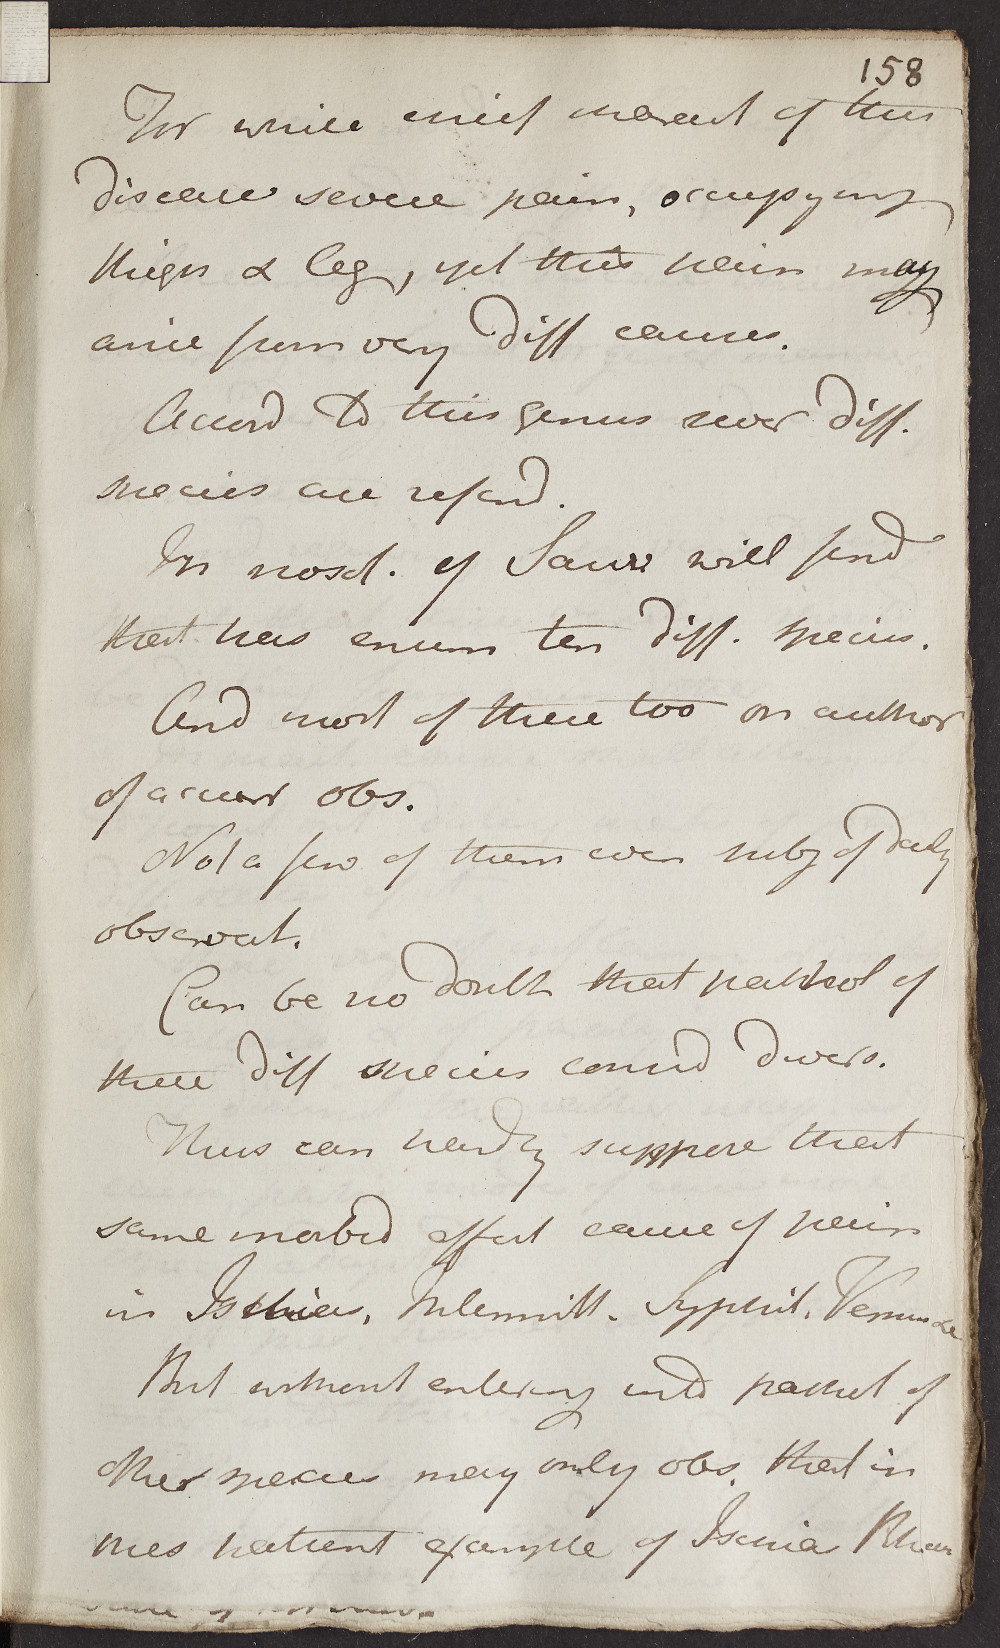 158
For while chief charact of this
disease severe pain, occupying
thigh & leg, yet this pain may
arise from very diff causes.
Accord to this genus sever diff.
species are referd.
In nosol. of Sauv will find
that has enum ten diff. species.
And most of these too on author
of accurat obs.
Not a few of them even subj of daily
observat.
Can be no doubt that pathol of
these diff species consid divers.
Thus can hardly suppose that
same morbid affect cause of pain
in Ischias, Intermitt. Syphilit. Verminose
But without entering into pathol of
other species may only obs. that in
this patient example of Ischias Rheu